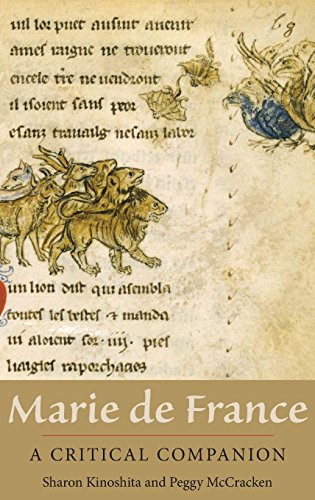 uil lor puet ausint auenir
ames uigne ne troueront
encele tre ne uendront
il isoient sans peor
esanz trauaile nesanz labor
un lion dist qui asembla
toutes les bestes & manda
ui aloient sor .iiii. pies
Marie de France
A CRITICAL COMPANION
Sharon Kinoshita and Peggy McCracken